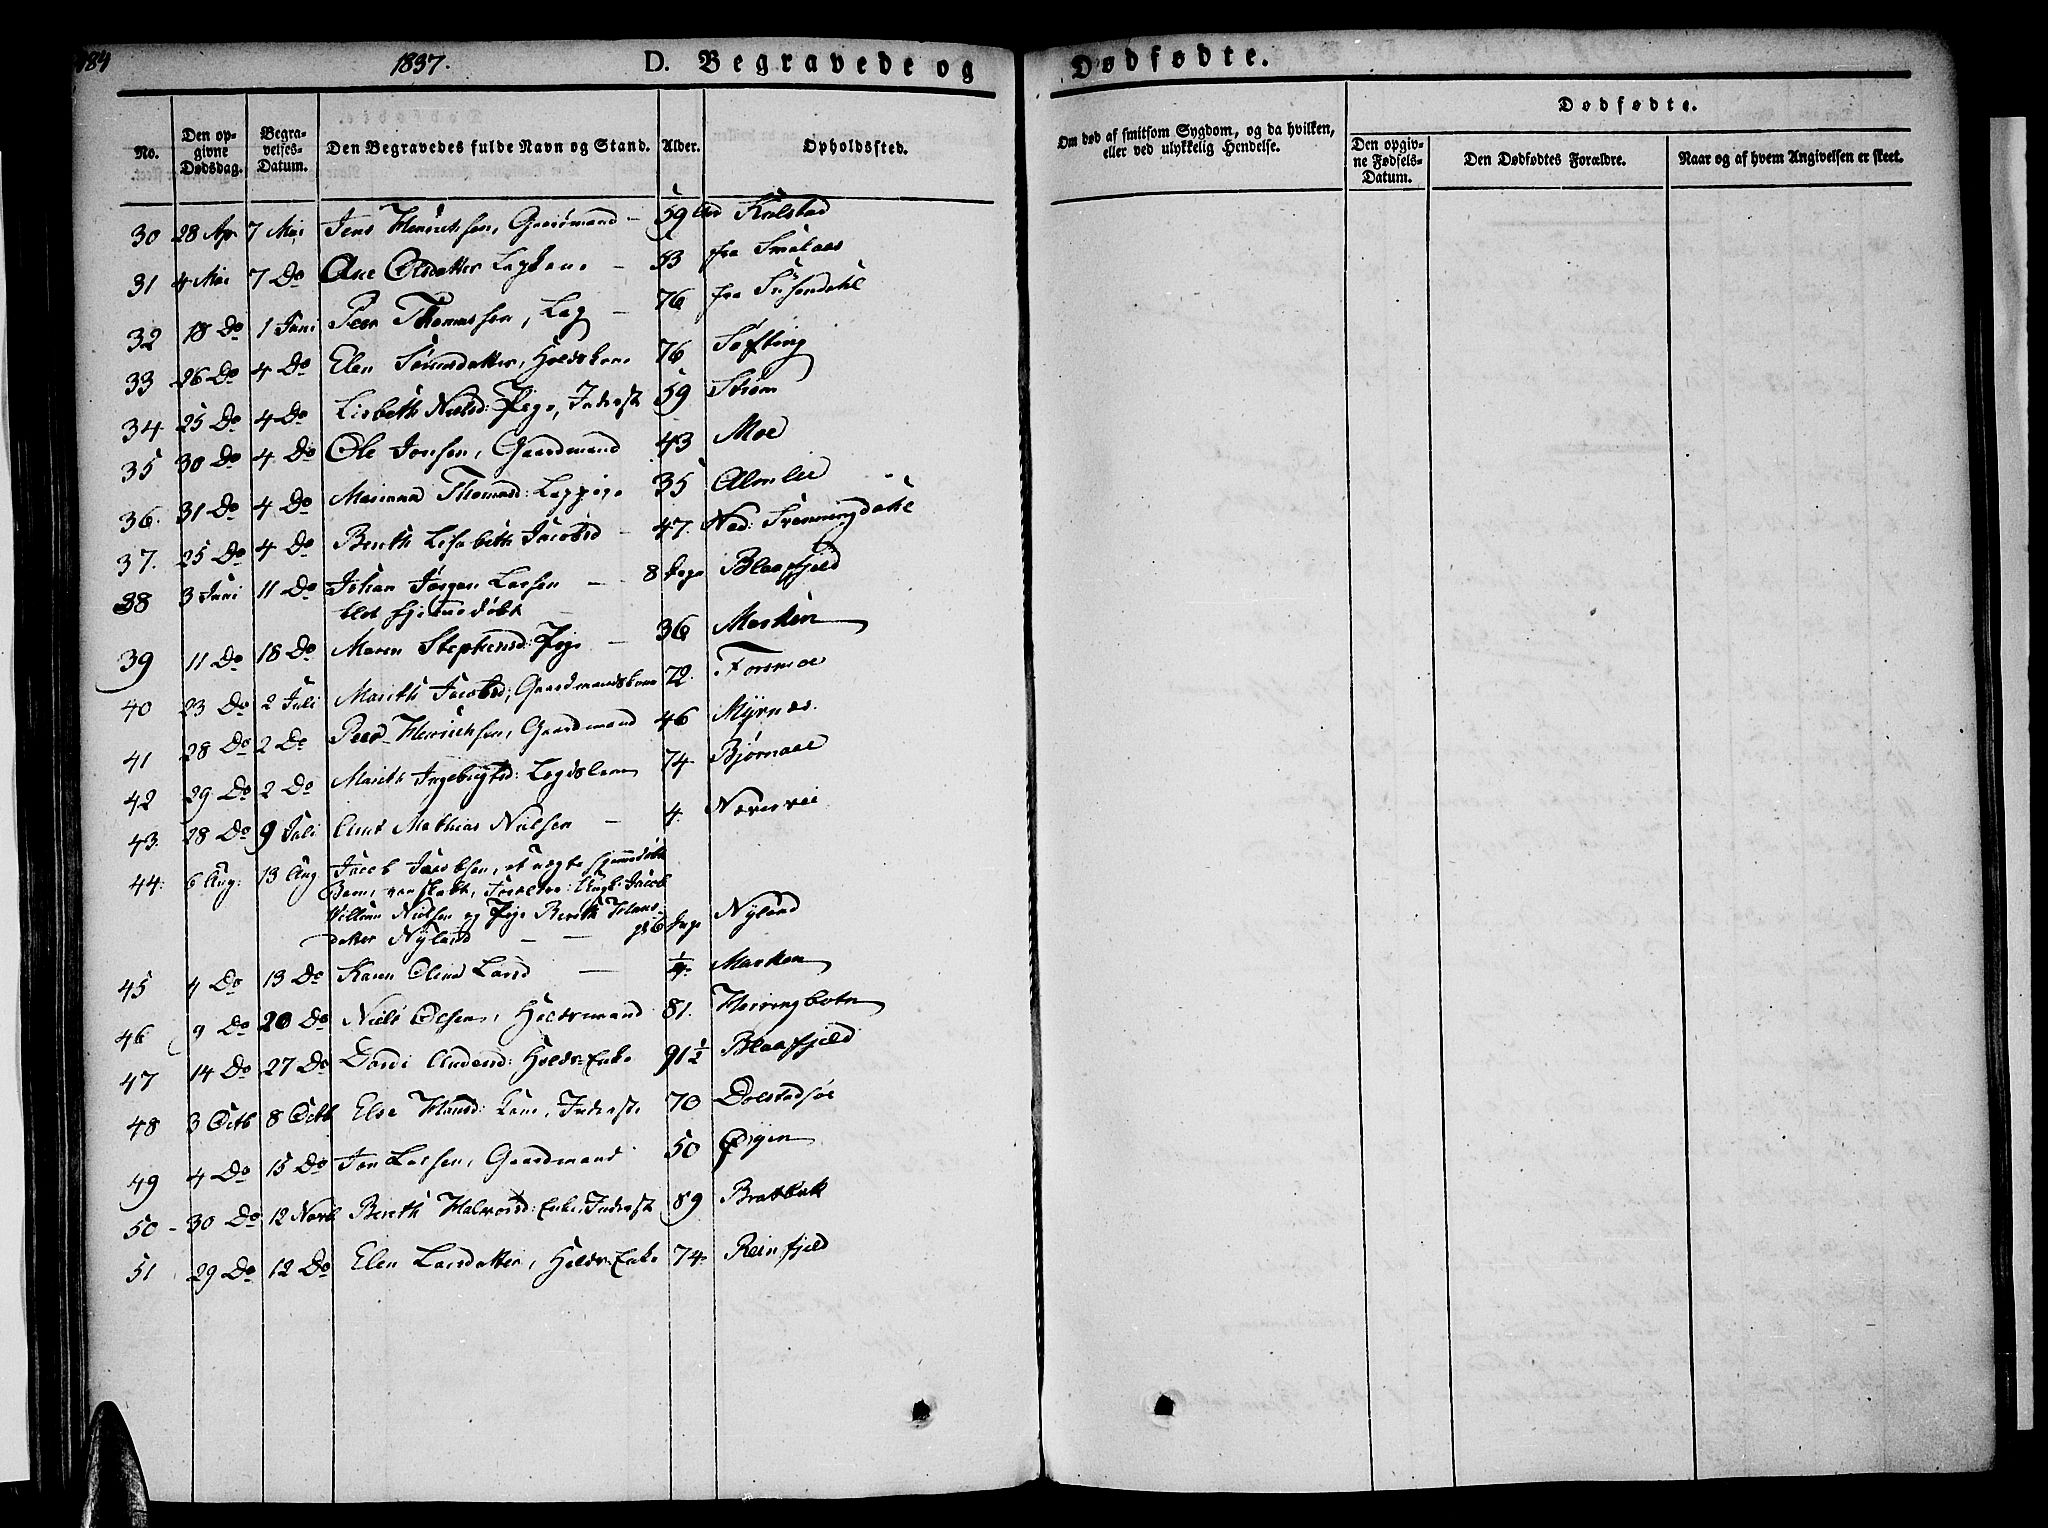 184
1837.
D. Begravede og
Dødfødte.
No.
Den opgivne Dødsdag.
Begravelses-Datum.
Den Begravedes fulde Navn og Stand.
Alder.
Opholdssted.
Om død af smitsom Sygdom, og da hvilken, eller ved ulykkelig Hendelse.
Dødfødte.
Den opgivne Fødsels-Datum.
Den Dødfødtes Forældre.
Naar og af hvem Angivelsen er skeet.
30 28 Apr 7 Mai Jens Henrichsen, Gaardmand – 59 Kulstad
31 4 Mai 7 Do Ane Olsdatter – 53 fra Smalaas
32 18 Do 1 Juni Peer Thomassen, Lap – 76 fra Susendahl
33 26 Do 4 Do Elen Sørensdatter, 76 Søfting
34 25 Do 4 Do Lisbeth Nielsd: Pige, Inderst 59 Strøm
35 30 Do 4 Do Ole Jonsen, Gaardmand 43 Moe
36. 31 Do 4 Do Marianna Thomasd: Lappige 35 Almlie
37. 25 Do 4 Do Berith Lisabeth Jacobsd – 47. Ned: Svenningdahl
38 3 Juni 11 Do Johan Jørgen Larsen – 8 Dage Blaafjeld
hjemmedøbt
39 11 Do 18 Do Maren Stephensd: Pige – 36 Marken
40 23 Do 2 Juli Marith Jacobsd; Gaardmandskone 72. Forsmoe
41 28 Do 2 Do Peer Henrichsen, Gaardmand 46 Myrnes.
42 29 Do 2 Do Marith Ingebrigtsd: 74 Bjørnaae
43. 28 Do 9 Juli Arnt Mathias Nielsen – 4. Næverveie
44: 6 Aug: 13 Aug Jacob Jacobsen, et uægte hjemmedøbt
Barn, Forældre: Ungk: Jacob
Willum Nielsen og Pige Berith Hans-
datter Nyland – – 6 Dage Nyland
45 4 Do 13 Do Karen Olina Larsd – Marken
46 9 Do 20 Do Niels Olsen, 81. Herringbotn
47 14 Do 27 Do Dordi Andersd: Enke 91 1/2 Blaafjeld
48 3 Octb 8 Octb Else Hansd: Kone, Inderste 70 Dolstadsøe
49 4 Do 15 Do Jon Larsen, Gaardmand 50 Øyen
50 – 30 Do 12 Novb Berith Halvorsd: Enke, Inderst 89 Bratbak
51 29 Do 12 Do Elen Larsdatter, Enke 74. Reinfjeld